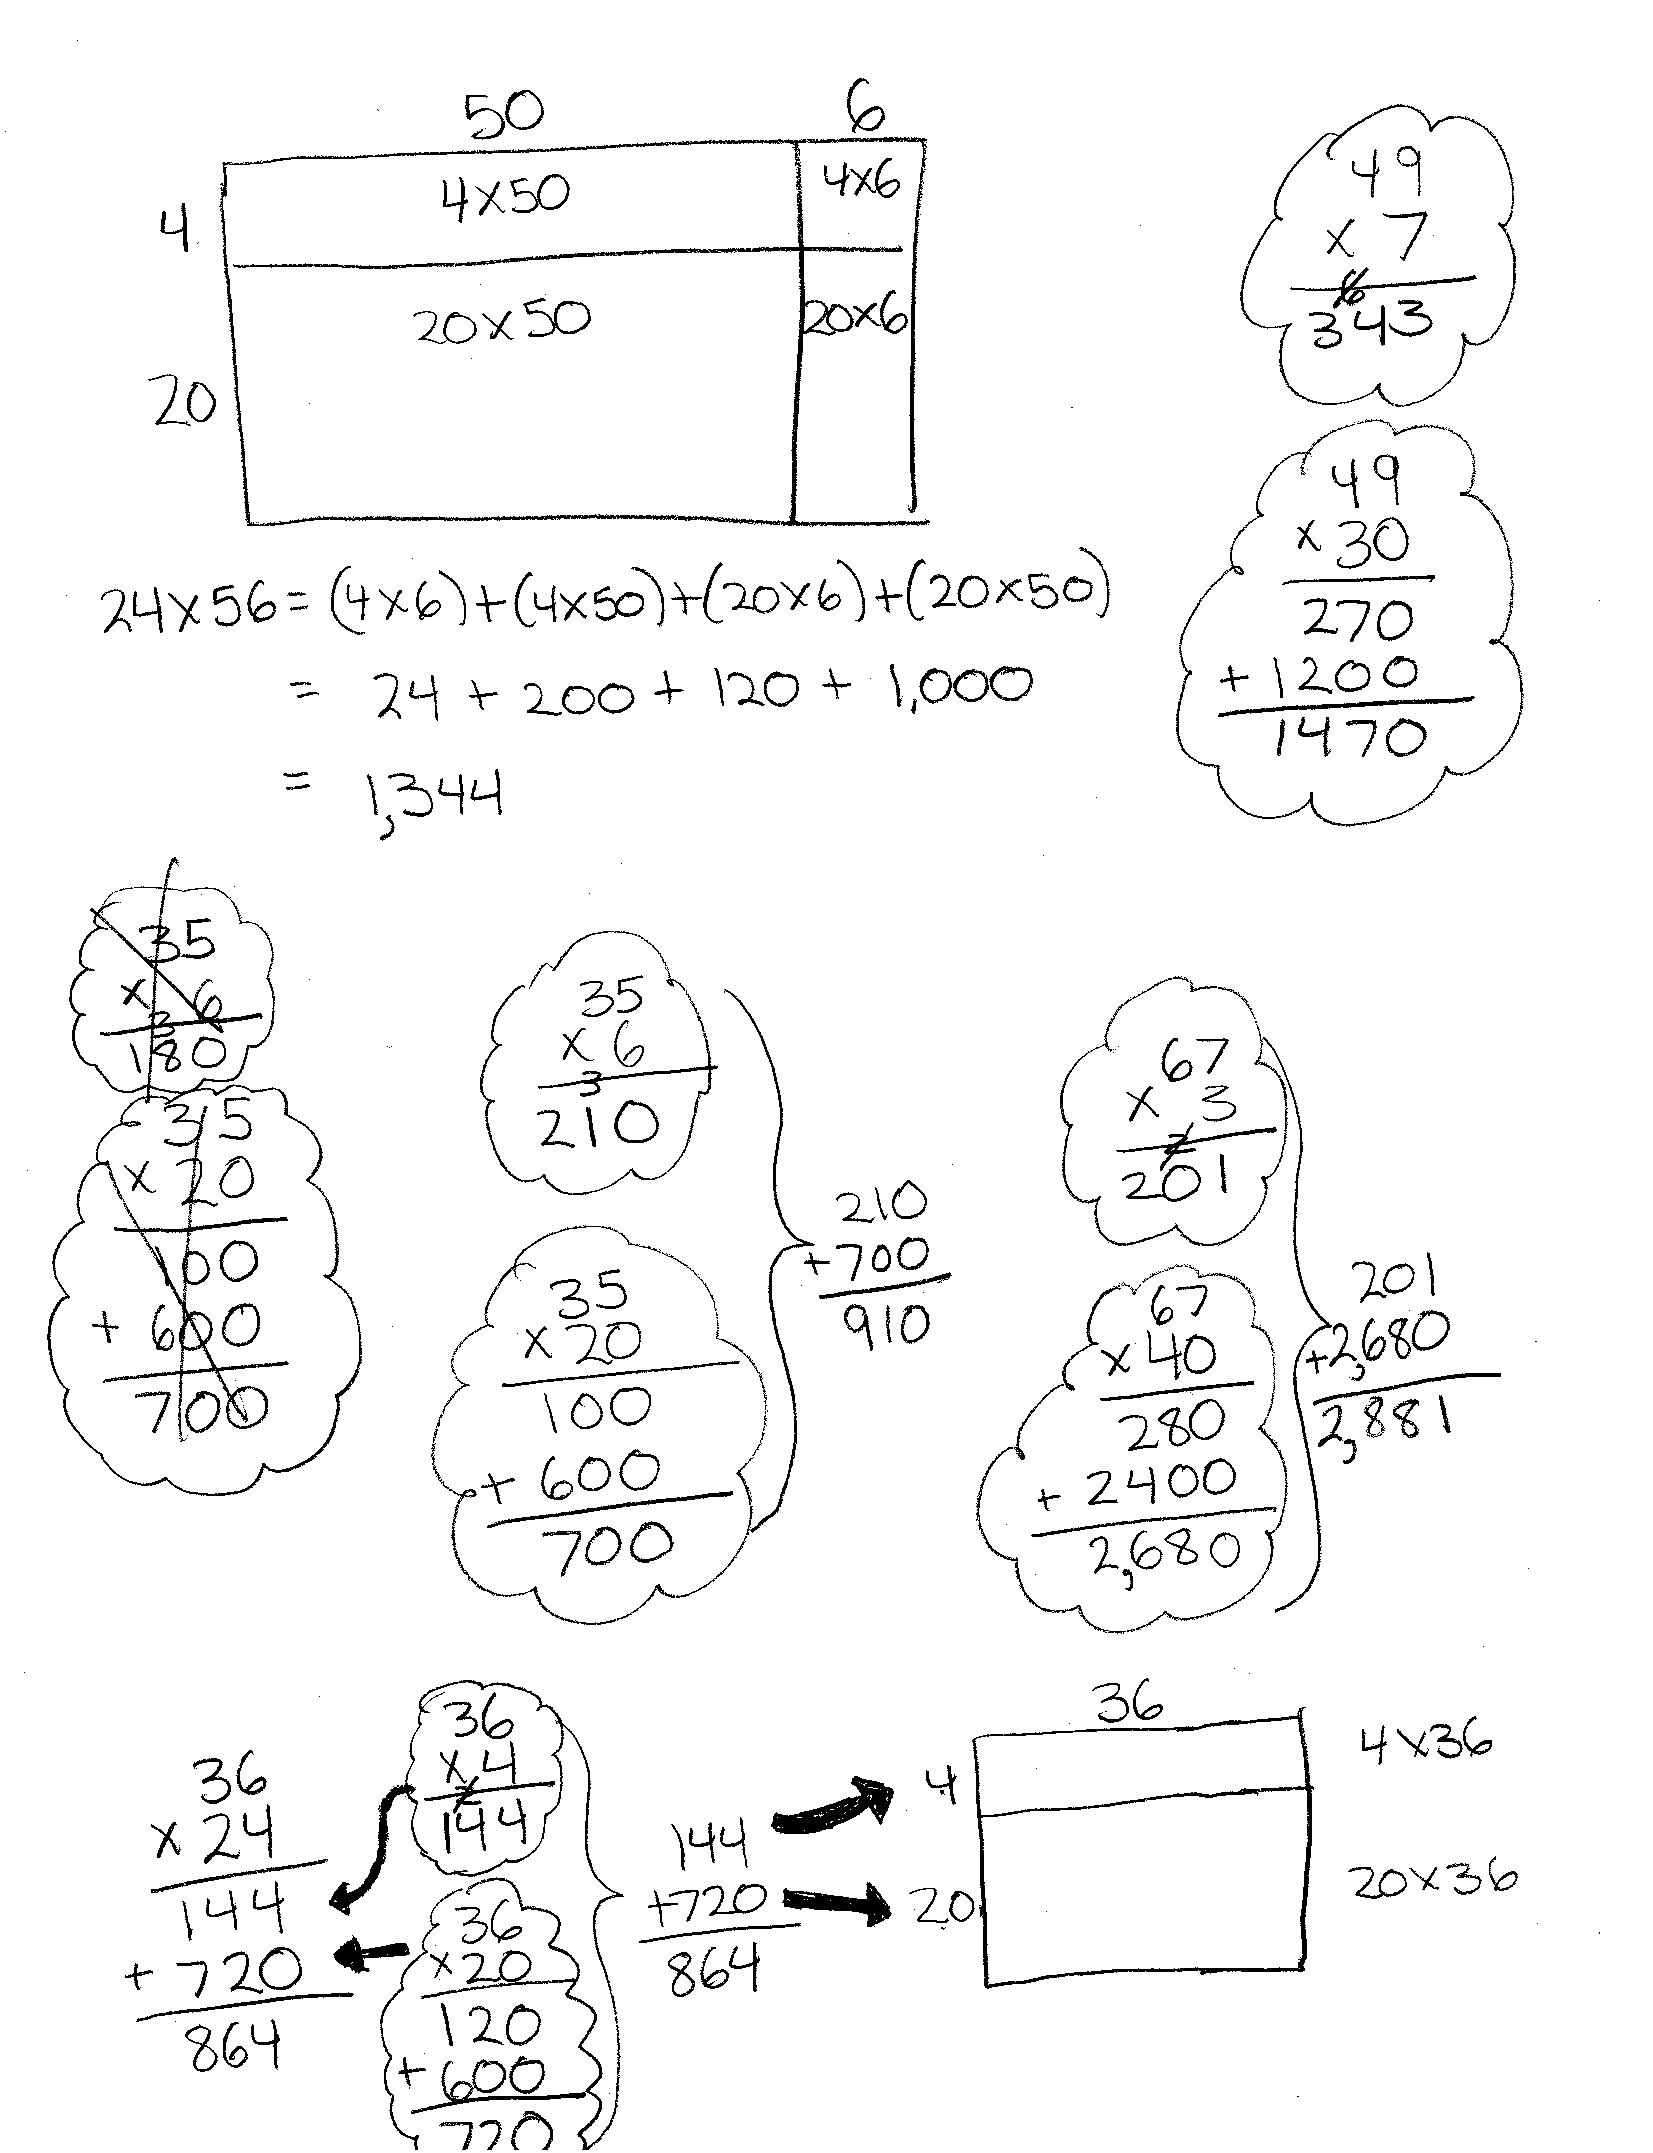 50 6
4 4x50 4x6
20 20x50 20x6
24x56=(4x6)+(4x50)+(20x6)+(20x50)
= 24 + 200 + 120 + 1,000
= 1,344
49
x 7
6
343
49
x 30
270
+ 1200
1470
35
x 6
3
180
35
x 20
100
+ 600
700
35
x 6
3
210
35
x 20
100
+ 600
700
210
+700
910
67
x 3
2
201
67
x 40
280
+ 2400
2,680
201
+2,680
2,881
36
x 24
144
+ 720
864
36
x 4
2
144
36
x 20
120
+ 600
720
144
+720
864
36
4 4x36
20 20x36